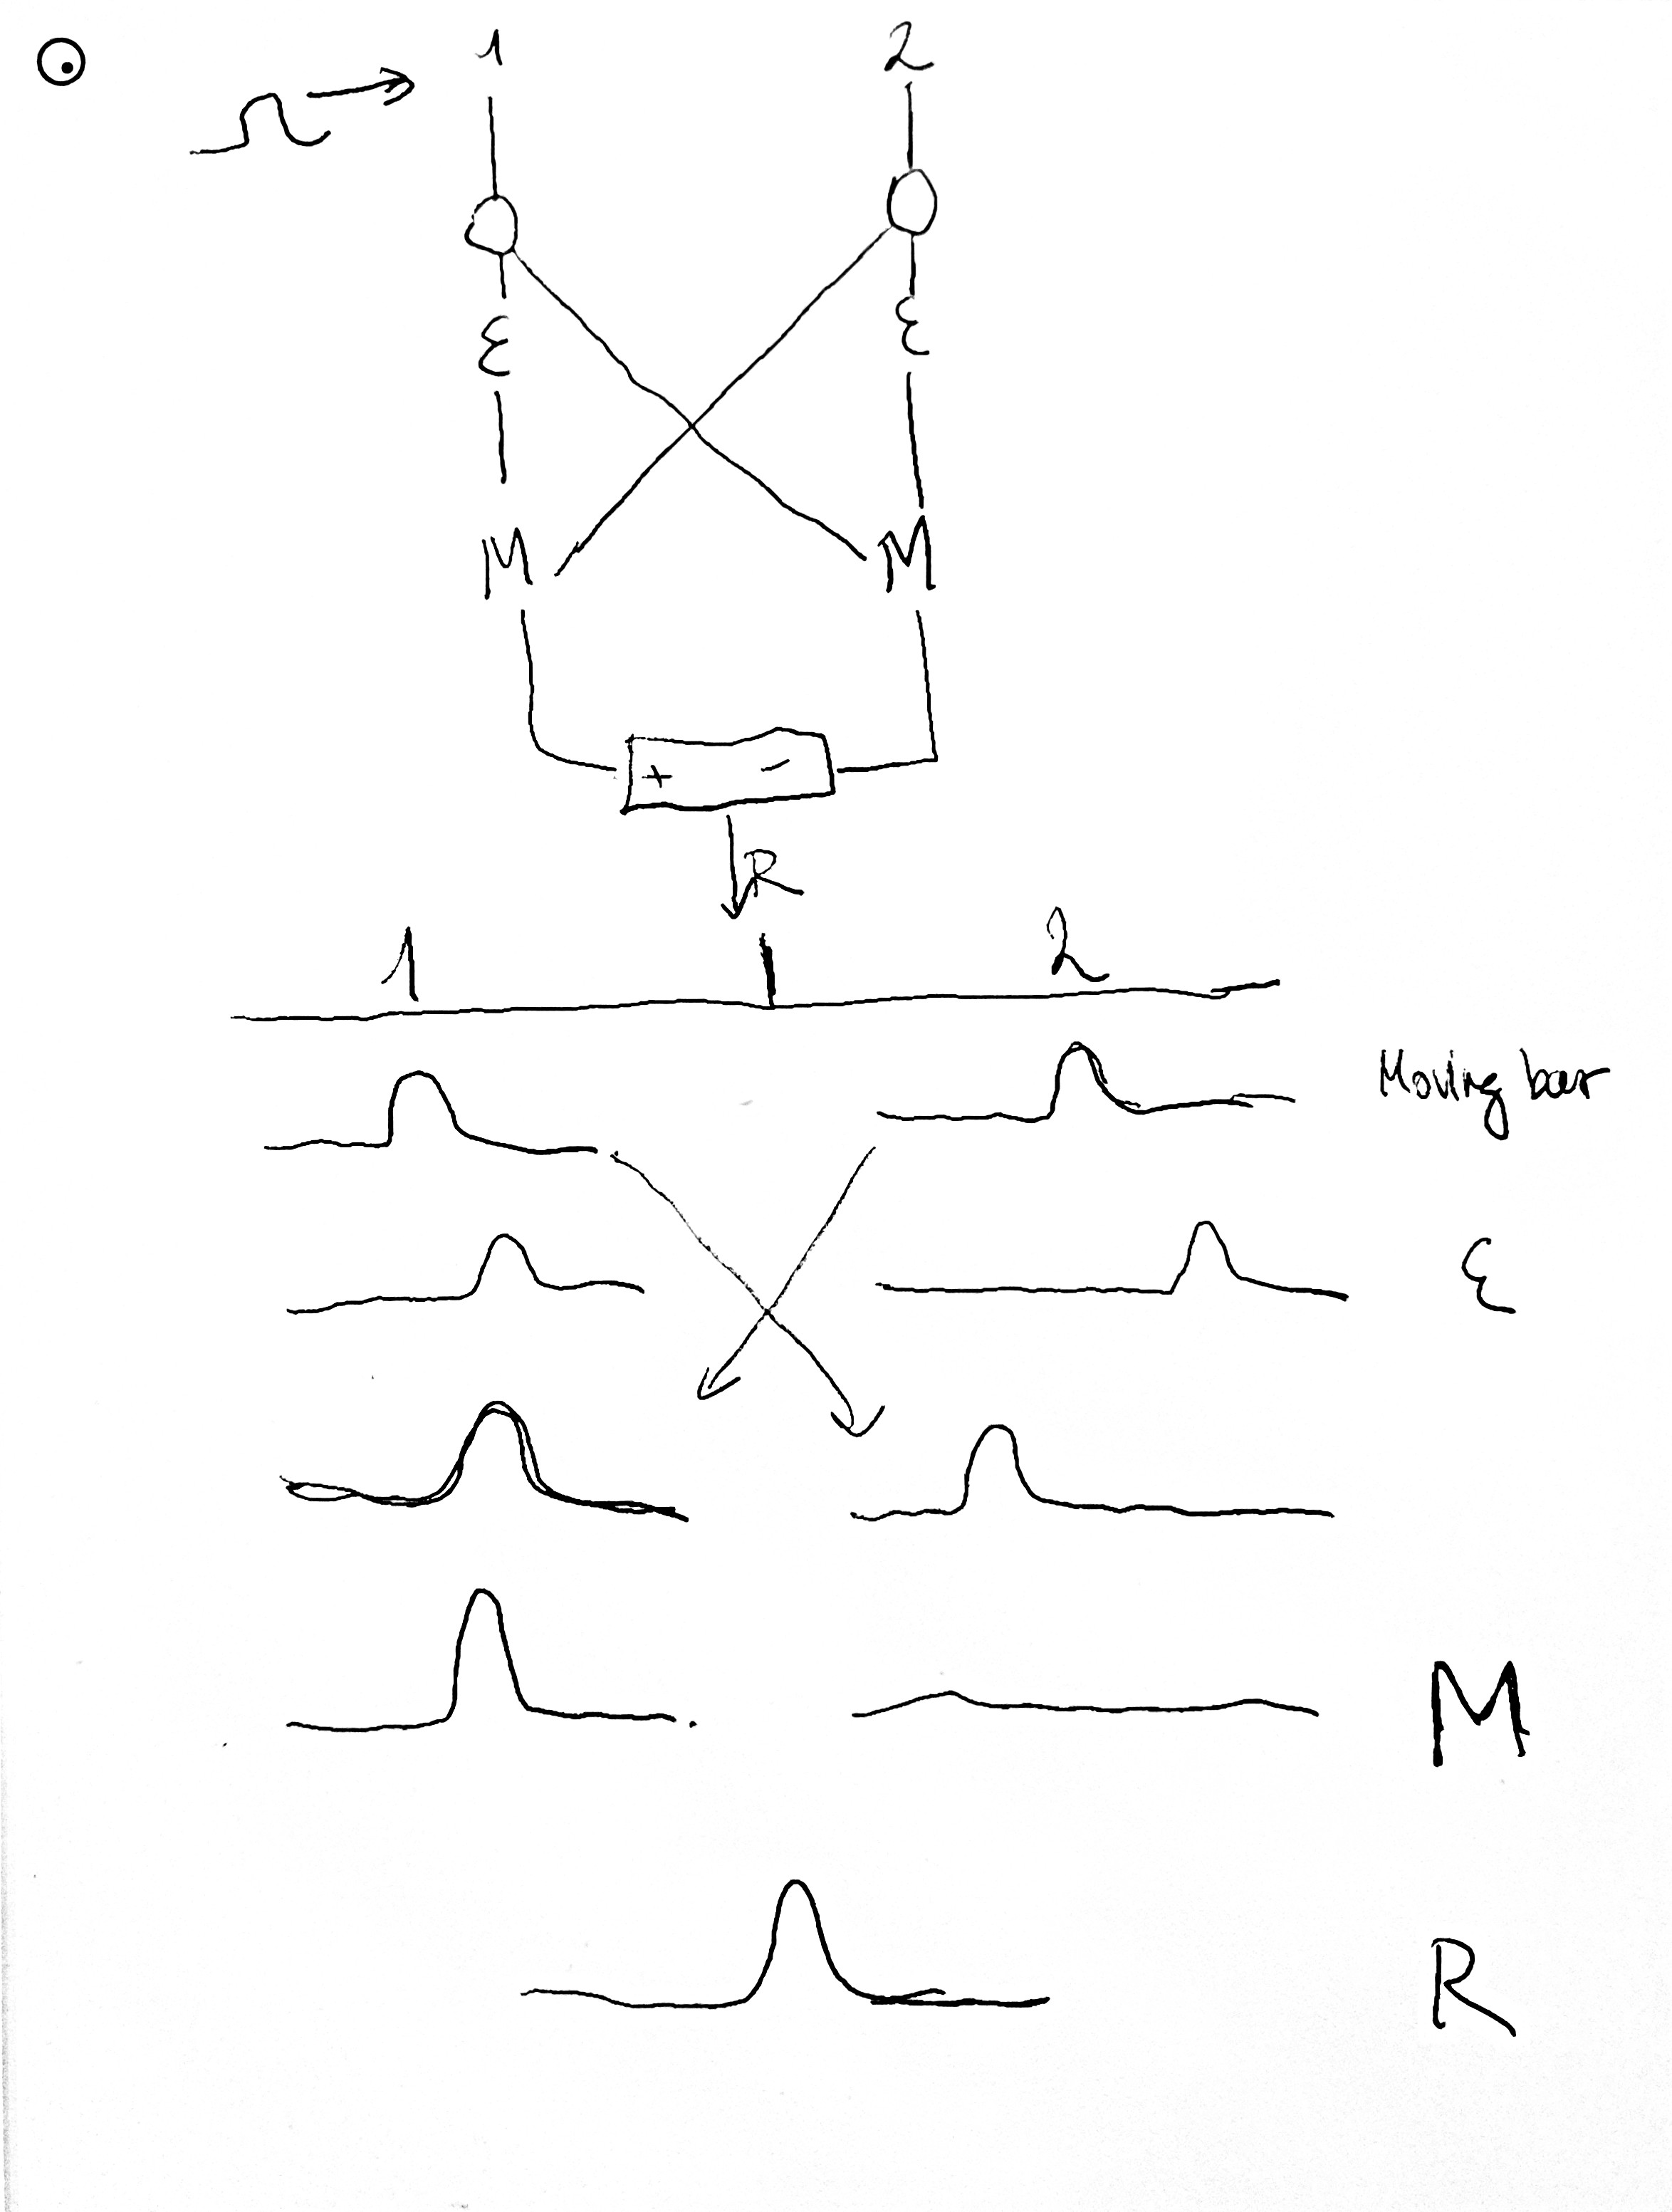 1 2
ε ε
M M
+ −
R
1 2
Moving bar
ε
M
R